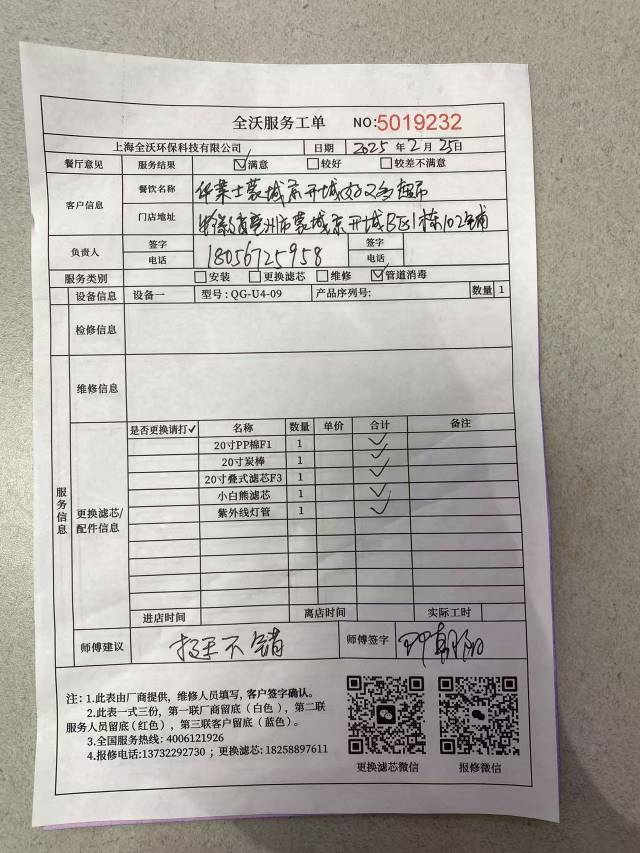 全沃服务工单 NO:5019232
上海全沃环保科技有限公司 日期 2025 年 2 月 25 日
餐厅意见 服务结果 ☑满意 □较好 □较差不满意
客户信息 餐饮名称 华莱士蒙城京开城好又多超市
门店地址 安徽省亳州市蒙城京开城B区1栋102铺
负责人 签字 签字
电话 18056725958 电话
服务类别 □安装 □更换滤芯 □维修 ☑管道消毒
设备信息 设备一 型号: QG-U4-09 产品序列号: 数量 1
检修信息
维修信息
服务信息
更换滤芯/配件信息
是否更换请打✓ 名称 数量 单价 合计 备注
20寸PP棉F1 1 ✓
20寸炭棒 1 ✓
20寸叠式滤芯F3 1 ✓
小白熊滤芯 1 ✓
紫外线灯管 1 ✓
进店时间 离店时间 实际工时
师傅建议 不错 师傅签字
注: 1.此表由厂商提供，维修人员填写, 客户签字确认。
2.此表一式三份，第一联厂商留底（白色），第二联
服务人员留底(红色)，第三联客户留底（蓝色）。
3.全国服务热线: 4006121926
4.报修电话:13732292730 ; 更换滤芯: 18258897611
更换滤芯微信 报修微信